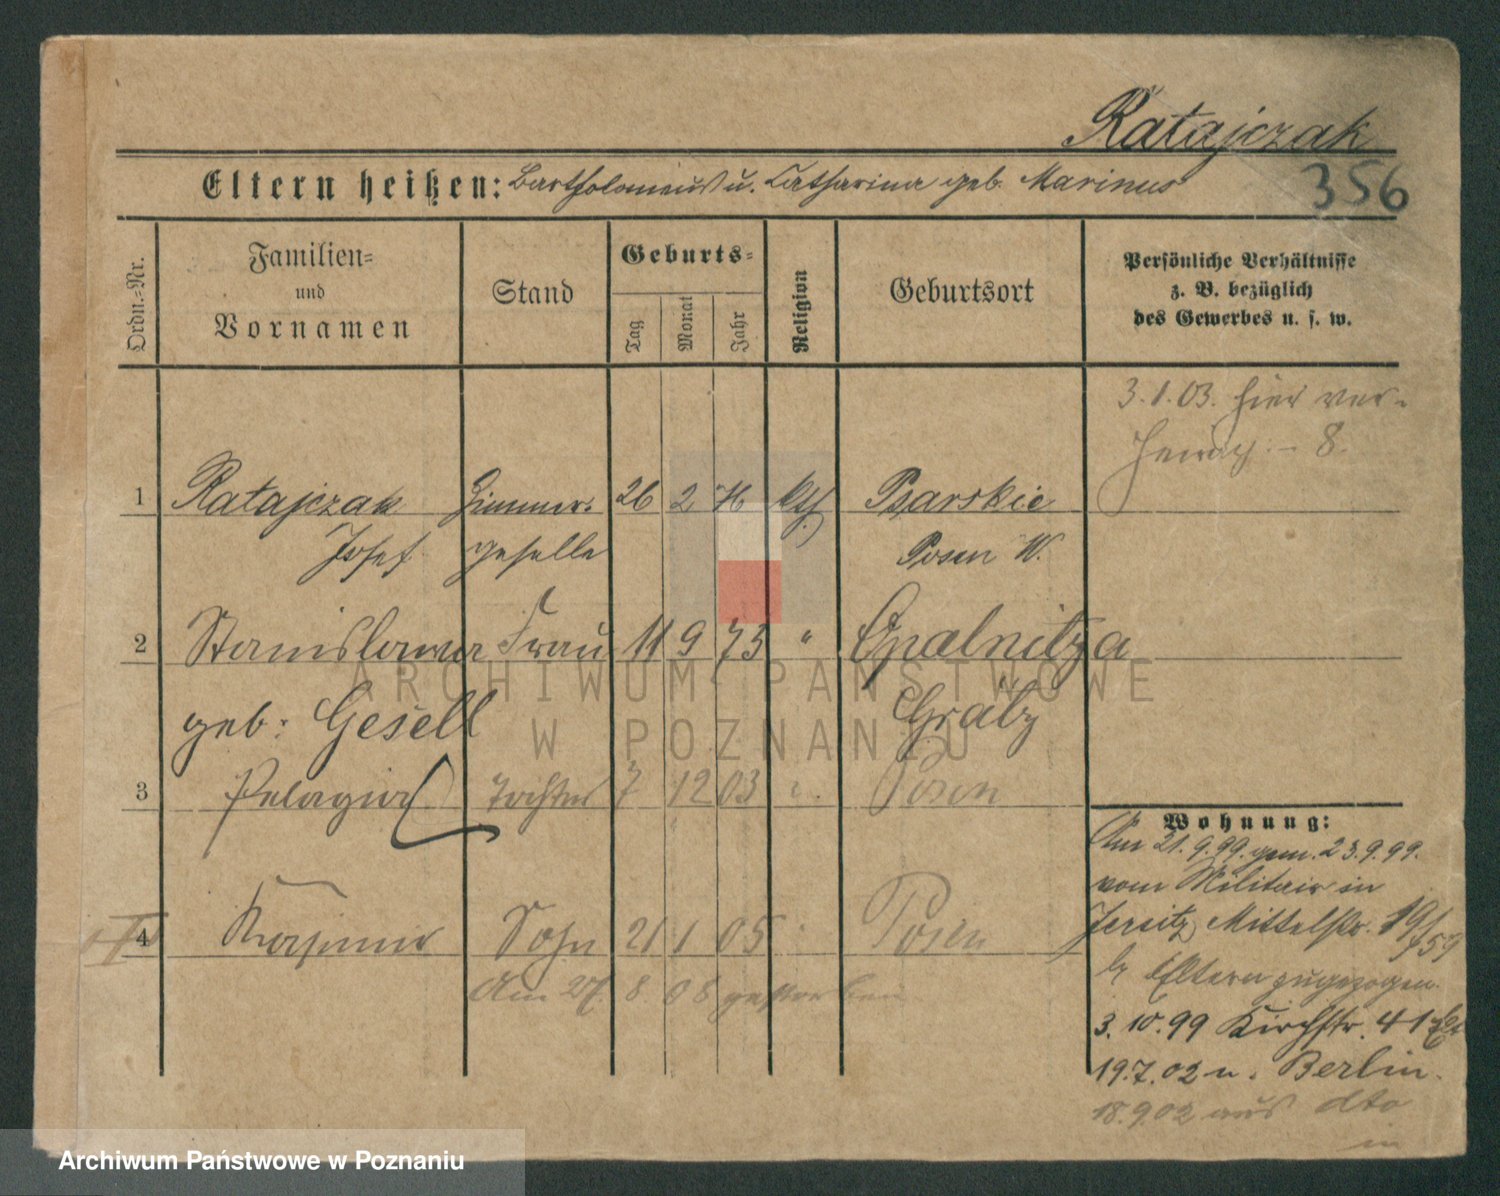 Ratajczak
Eltern heißen: Bartholomeus u. Catharina geb. Marinus
356
Ordn.=Nr.
Familien=
und
Vornamen
Stand
Geburts=
Tag
Monat
Jahr
Religion
Geburtsort
Persönliche Verhältnisse
z. B. bezüglich
des Gewerbes u. s. w.
3.1.03. hier ver-
heirat. - 8.
1 Ratajczak Zimmer- 26 2 76 kth Psarskie
Josef geselle Posen W.
2 Stanislawa Frau 11 9 73 " Opalnitza
geb: Gesell Grätz
3 Pelagia Tochter 7 12 03 Posen
4 Kasimir Sohn 21 1 05 Posen
Am 27. 8. 08 gestorben
Wohnung:
Am 21.9.99. gem. 23.9.99.
vom Militair in
Jersitz, Mittelstr. 19/
59
Eltern zugezogen.
3.10.99 Kirchstr. 41
19.7.02 n. Berlin.
18.9.02 aus dto
in
ARCHIWUM PAŃSTWOWE
W POZNANIU
Archiwum Państwowe w Poznaniu